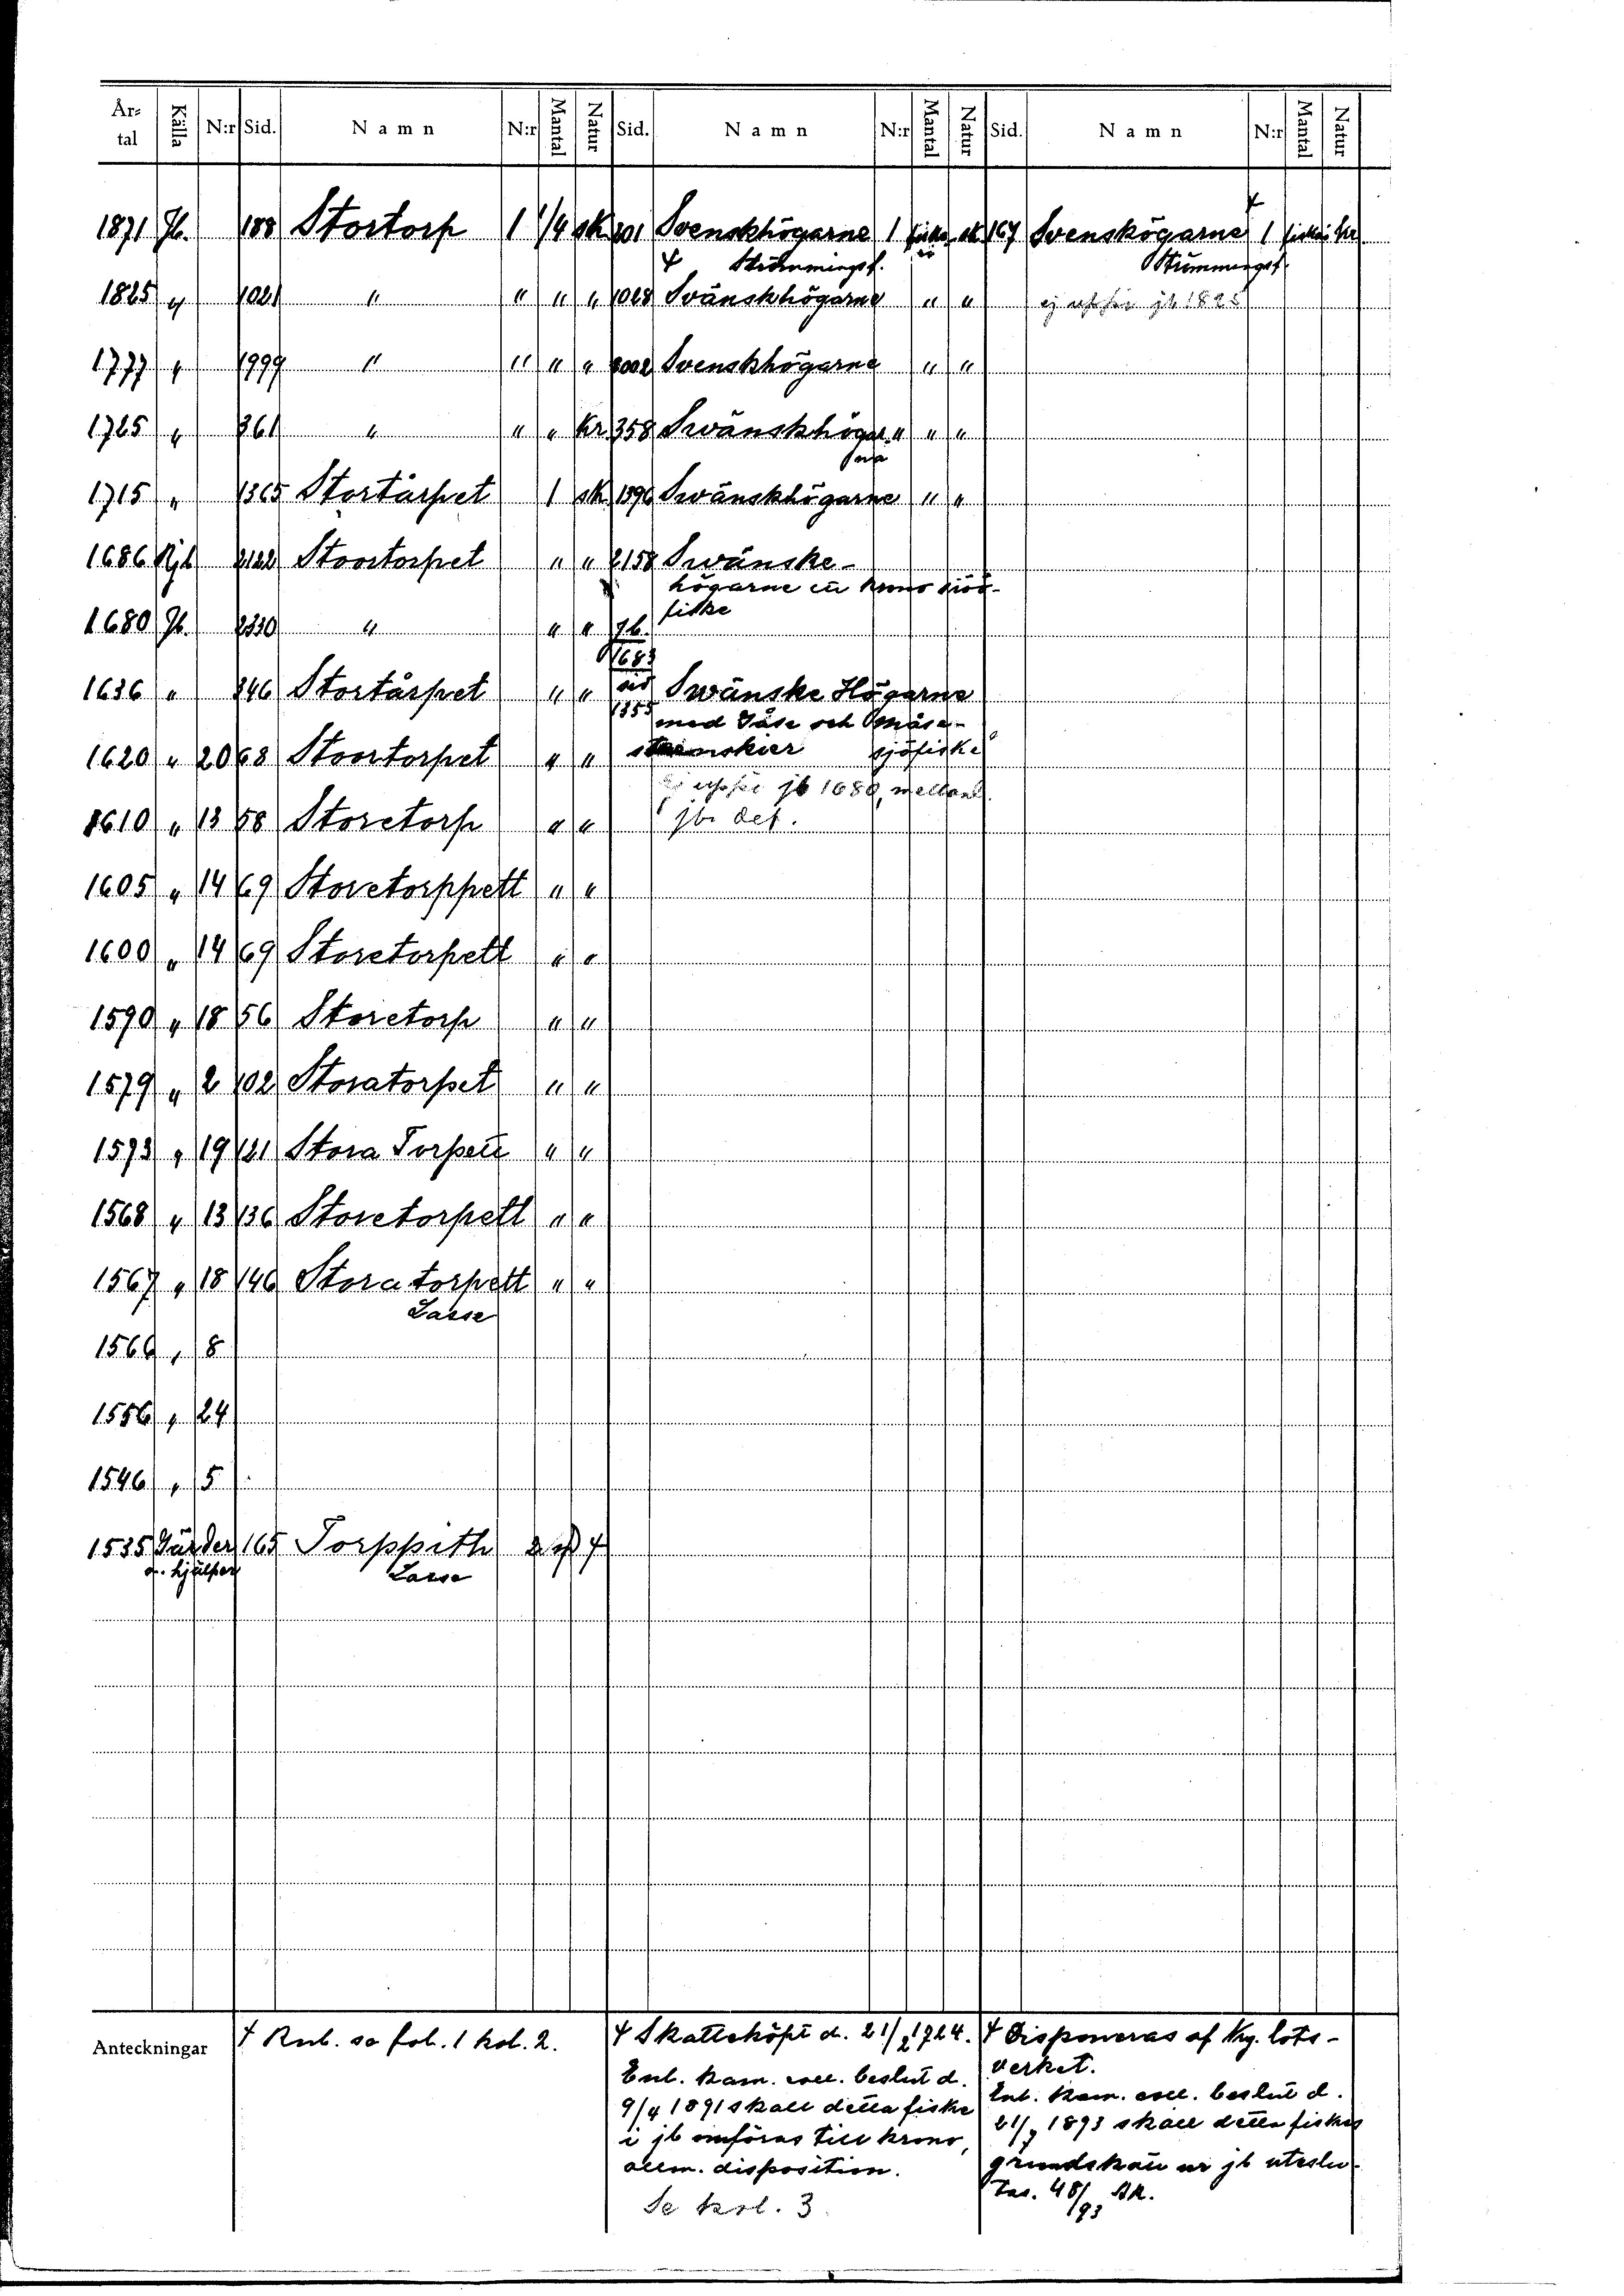 År-tal Källa N:r Sid. Namn N:r Mantal Natur Sid. Namn N:r Mantal Natur Sid. Namn N:r Mantal Natur
1871 Jb. 188 Stortorp 1 1/4 sk 201 Svenskhögarne 1 fiske sk 167 Svenskögarne 1 fiske kr
Strömmingsf. Strömmingsf.
1825 " 1021 " " " " 1028 Svänskhögarne " " ej jb 1825
1777 " 1999 " " " " 2002 Svenskhögarne " "
1725 " 361 " " " kr 358 Swänskhögar " " "
na
1715 " 1365 Stortårpet 1 sk 1396 Swänskhögarne " "
1686 Rjb 2122 Stoortorpet " " 2158 Swänske-
högarne ett krono siöö-
fiske
1680 Jb. 2330 " " " Jb.
1683
1636 " 346 Stortårpet " " sid Swänske Högarne
1355 med Gåse och Måse-
1620 " 20 68 Stoortorpet " " skier sjöfiske
jb 1680, melland.
1610 " 13 58 Storetorp " " jbr def.
1605 " 14 69 Storetorppett " "
1600 " 14 69 Storetorpett " "
1590 " 18 56 Storetorp " "
1579 " 2 102 Storatorpet " "
1573 " 19 121 Stora Torpett " "
1568 " 13 136 Storetorpett " "
1567 " 18 146 Stora torpett " "
Lasse
1566 " 8
1556 " 24
1546 " 5
1535 Gärder 165 Torppith
o. hjälper Lasse
Anteckningar
+ Rub. se fol. 1 kol. 2.
+ Skatteköpt d. 21/2 1724.
Enl. kam. coll. beslut d.
9/4 1891 skall detta fiske
i jb omföras till krono,
allm. disposition.
Se kol. 3.
+ Disponeras af Kg. lots-
verket.
Enl. kam. coll. beslut d.
21/7 1893 skall detta fiskes
grundskatt ur jb uteslu-
tas. 48/93 AK.